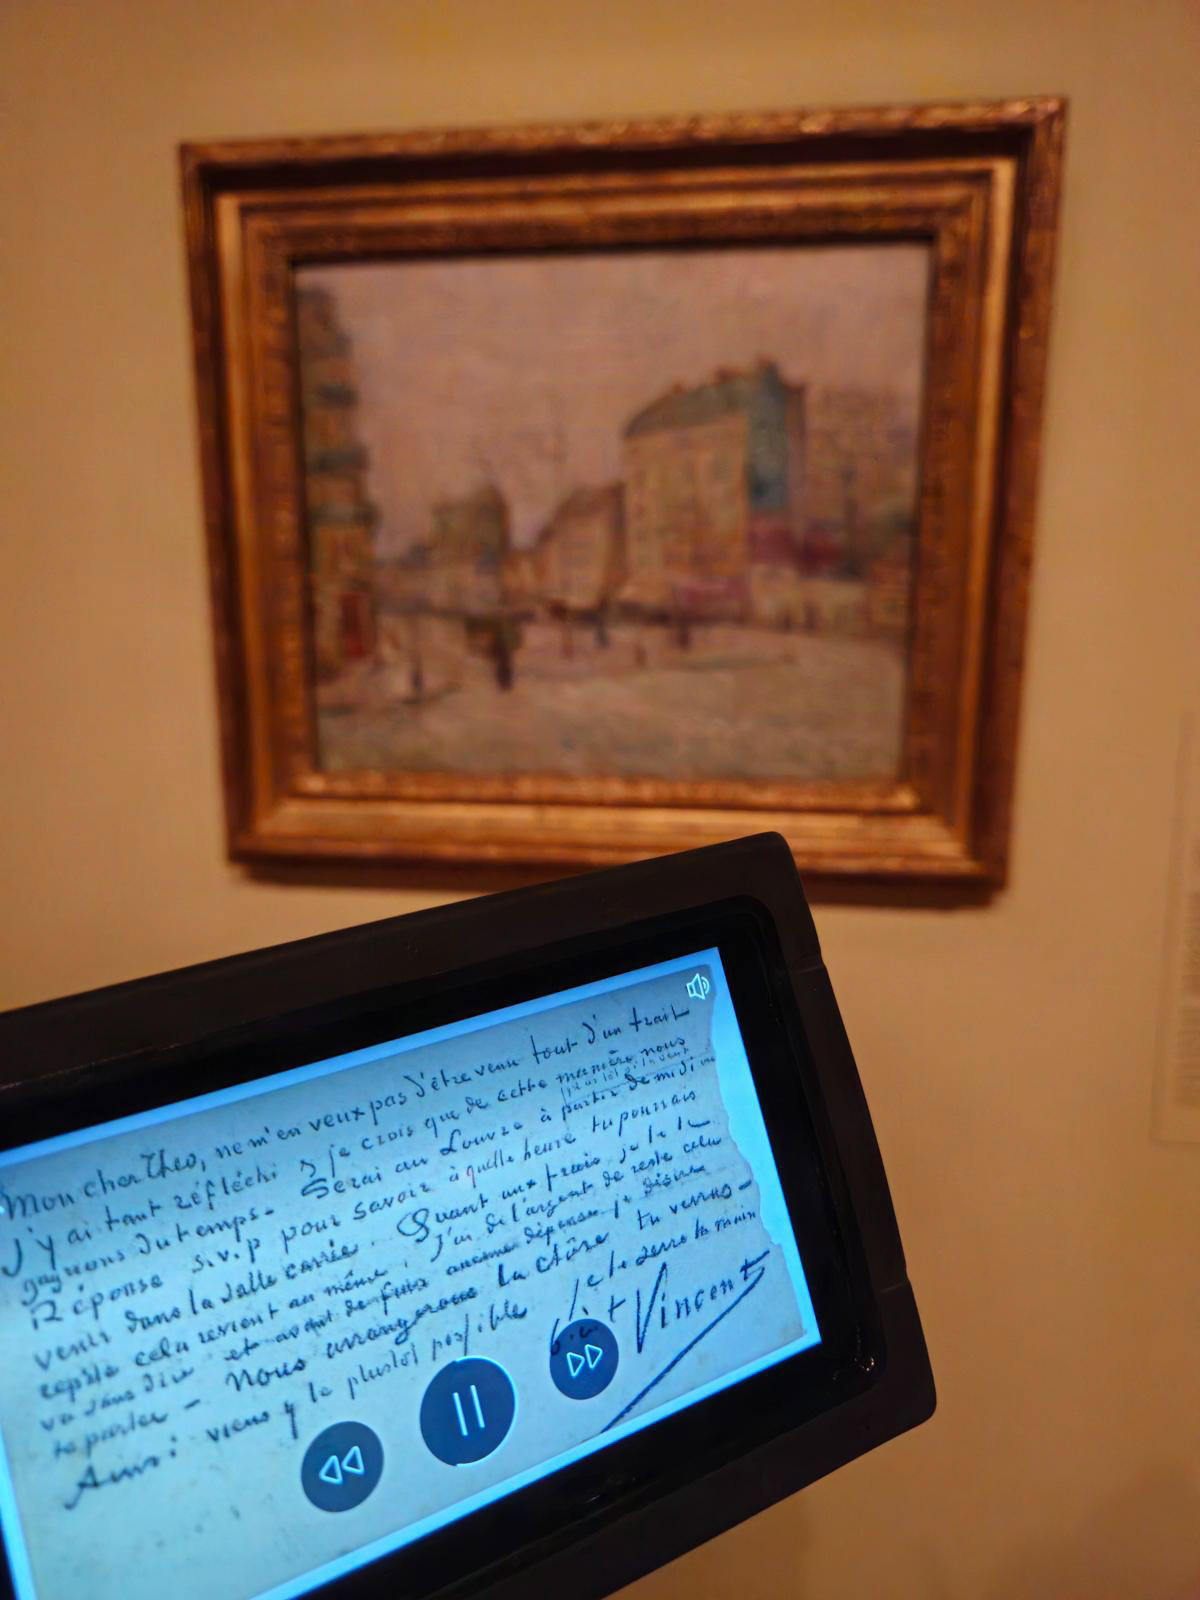 Mon cher Theo, ne m'en veux pas d'être venu tout d'un trait
J'y ai tant réfléchi & je crois que de cette manière nous
gagnons du temps. Serai au Louvre à partir de midi
plus tôt si tu veux
Réponse s.v.p pour savoir à quelle heure tu pourrais
venir dans la salle carrée. Quant aux frais je te le
repète cela revient au même. J'ai de l'argent de reste cela
va sans dire et avant de faire aucune dépense je désire
te parler – Nous arrangerons la chôse tu verras –
Ainsi viens y le plustôt possible je te serre la main
b. à t Vincent